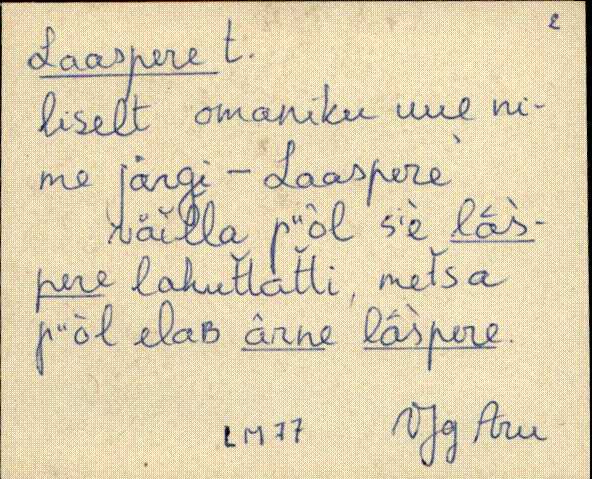 2
Laaspere t.
liselt omaniku uue ni-
me järgi – Laaspere
väĭlla pᵘòl sⁱè lầs-
pere lahut̆tat̆ti, met̆sa
pᵘòl elaʙ ârne lầspere.
LM77 VJg Aru